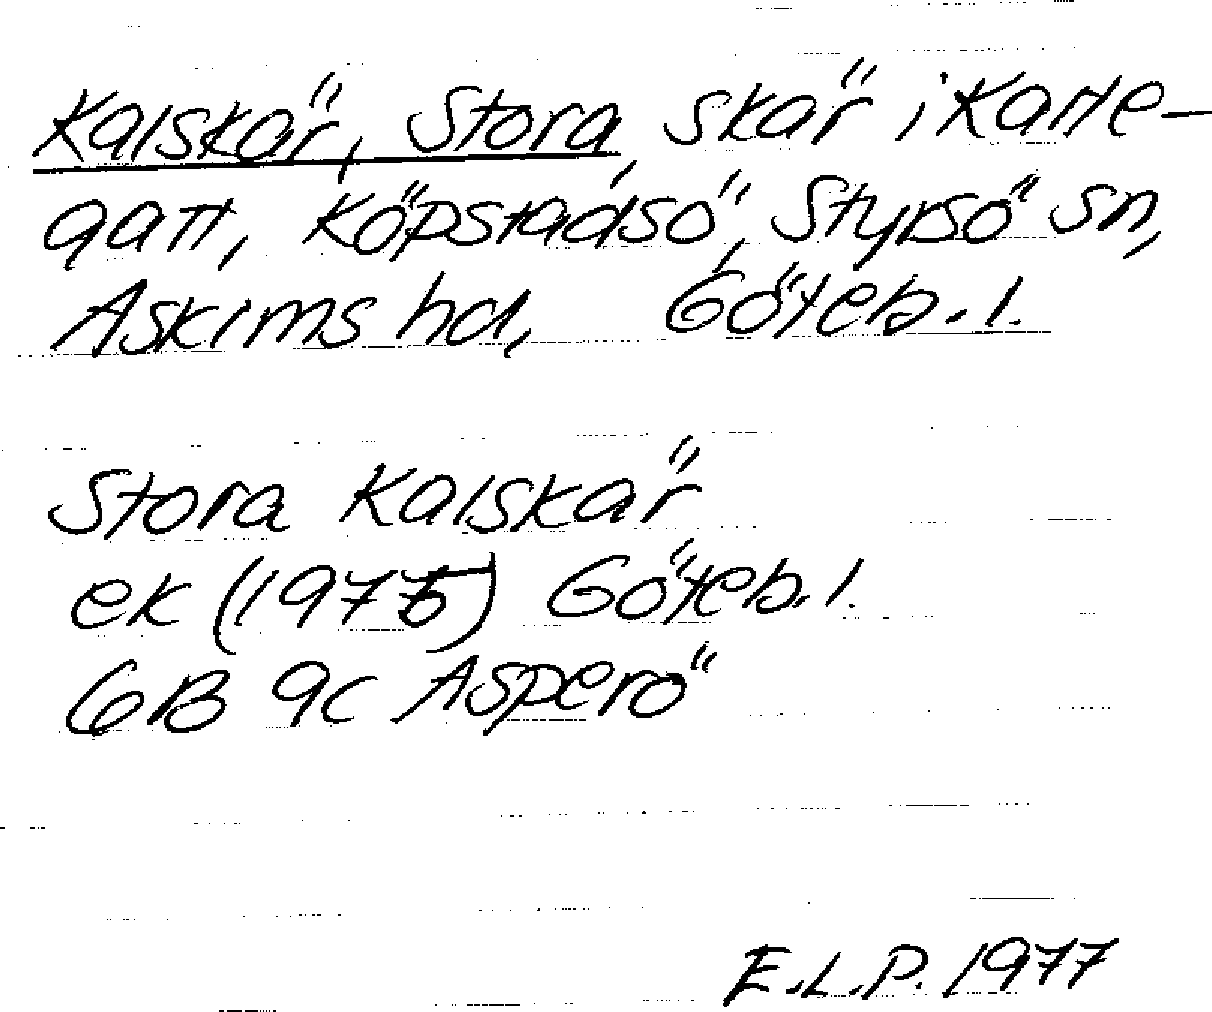 Kalskär, Stora, skär i Katte-
gatt, Köpstadsö, Styrsö sn,
Askims hd, Göteb. l.
Stora Kalskär
ek (1975) Göteb. l.
6B 9c Asperö
E.L.P. 1977